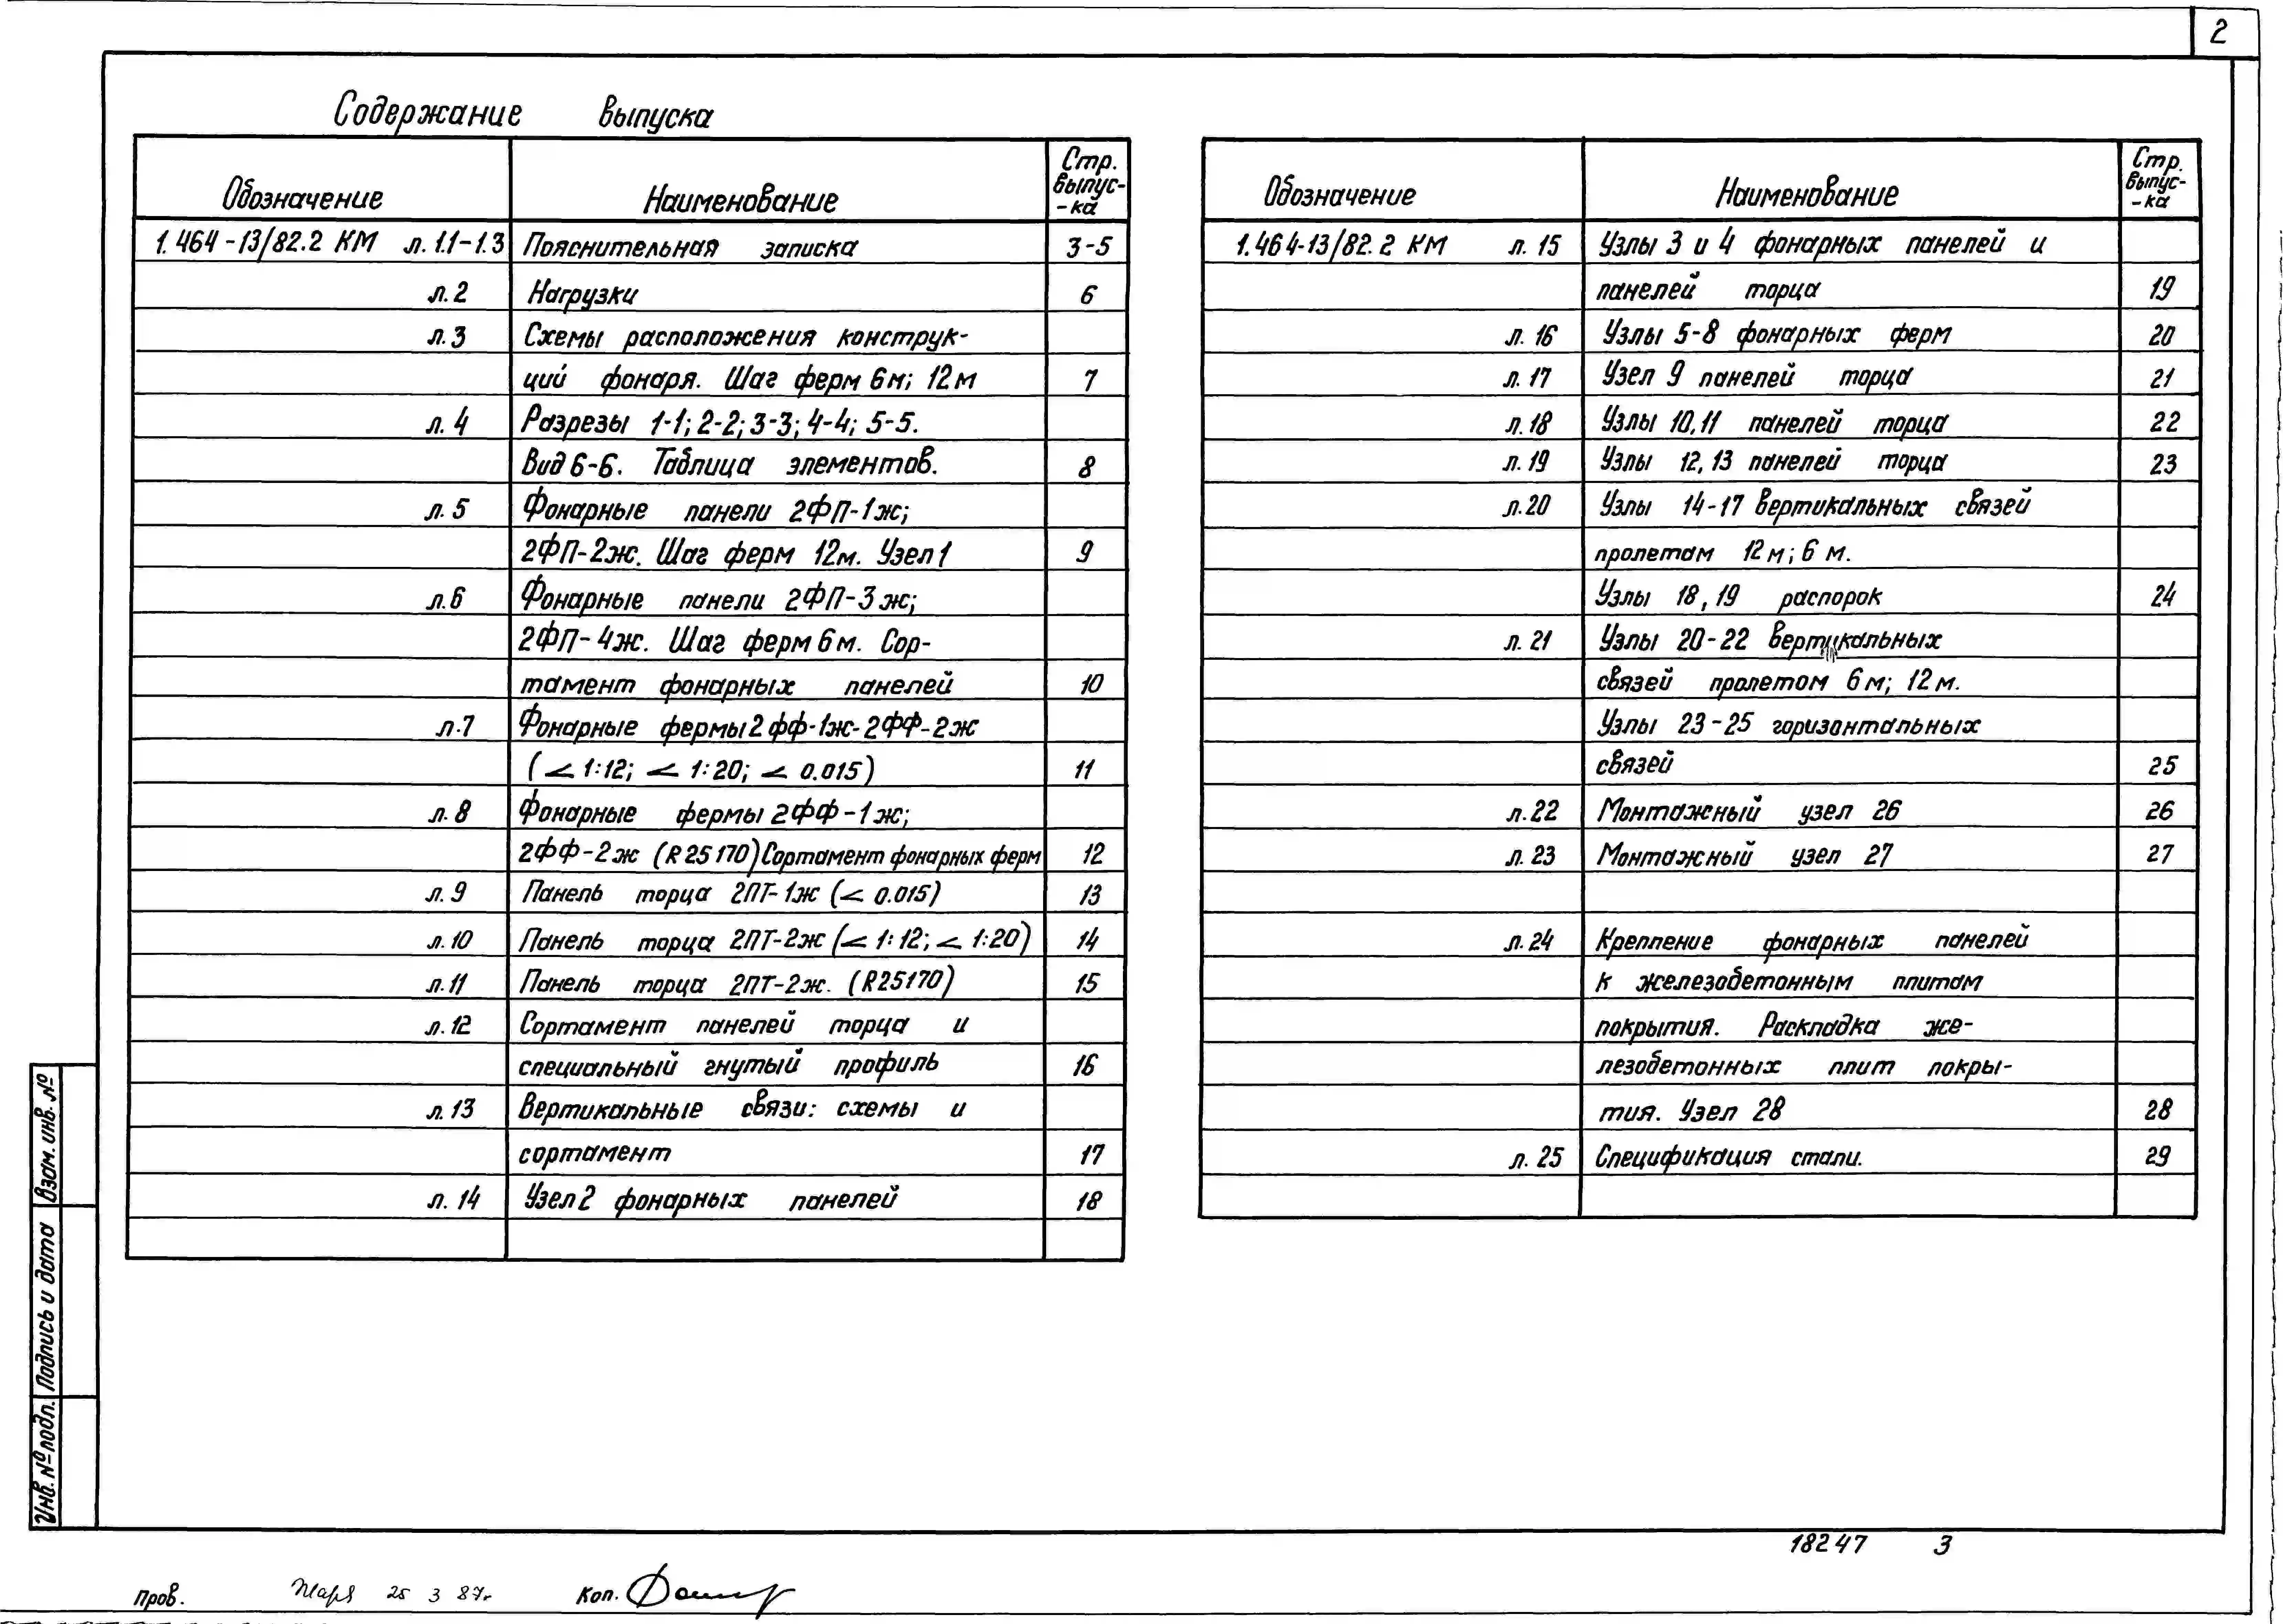 2
Содержание выпуска
Обозначение Наименование Стр. выпус-
-ка
1.464-13/82.2 КМ л. 1.1-1.3 Пояснительная записка 3-5
л.2 Нагрузки 6
л.3 Схемы расположения конструк-
ций фонаря. Шаг ферм 6м; 12м 7
л.4 Разрезы 1-1; 2-2; 3-3; 4-4; 5-5.
Вид 6-6. Таблица элементов. 8
л.5 Фонарные панели 2ФП-1ж;
2ФП-2ж. Шаг ферм 12м. Узел 1 9
л.6 Фонарные панели 2ФП-3ж;
2ФП-4ж. Шаг ферм 6м. Сор-
тамент фонарных панелей 10
л.7 Фонарные фермы 2фф-1ж-2ФФ-2ж
(∠ 1:12; ∠ 1:20; ∠ 0.015) 11
л.8 Фонарные фермы 2ФФ-1ж;
2ФФ-2ж (R 25170) Сортамент фонарных ферм 12
л.9 Панель торца 2ПТ-1ж (∠ 0.015) 13
л.10 Панель торца 2ПТ-2ж (∠ 1:12; ∠ 1:20) 14
л.11 Панель торца 2ПТ-2ж. (R25170) 15
л.12 Сортамент панелей торца и
специальный гнутый профиль 16
л.13 Вертикальные связи: схемы и
сортамент 17
л.14 Узел 2 фонарных панелей 18
Обозначение Наименование Стр. выпус-
-ка
1.464-13/82.2 КМ л. 15 Узлы 3 и 4 фонарных панелей и
панелей торца 19
л. 16 Узлы 5-8 фонарных ферм 20
л. 17 Узел 9 панелей торца 21
л.18 Узлы 10,11 панелей торца 22
л.19 Узлы 12,13 панелей торца 23
л.20 Узлы 14-17 вертикальных связей
пролетам 12м; 6 м.
Узлы 18,19 распорок 24
л.21 Узлы 20-22 вертикальных
связей пролетом 6м; 12м.
Узлы 23-25 горизонтальных
связей 25
л.22 Монтажный узел 26 26
л.23 Монтажный узел 27 27
л.24 Крепление фонарных панелей
к железобетонным плитам
покрытия. Раскладка же-
лезобетонных плит покры-
тия. Узел 28 28
л. 25 Спецификация стали. 29
Взам. инв. №
Подпись и дата
Инв. № подл.
18247 3
Пров. 25 3 87г Коп.